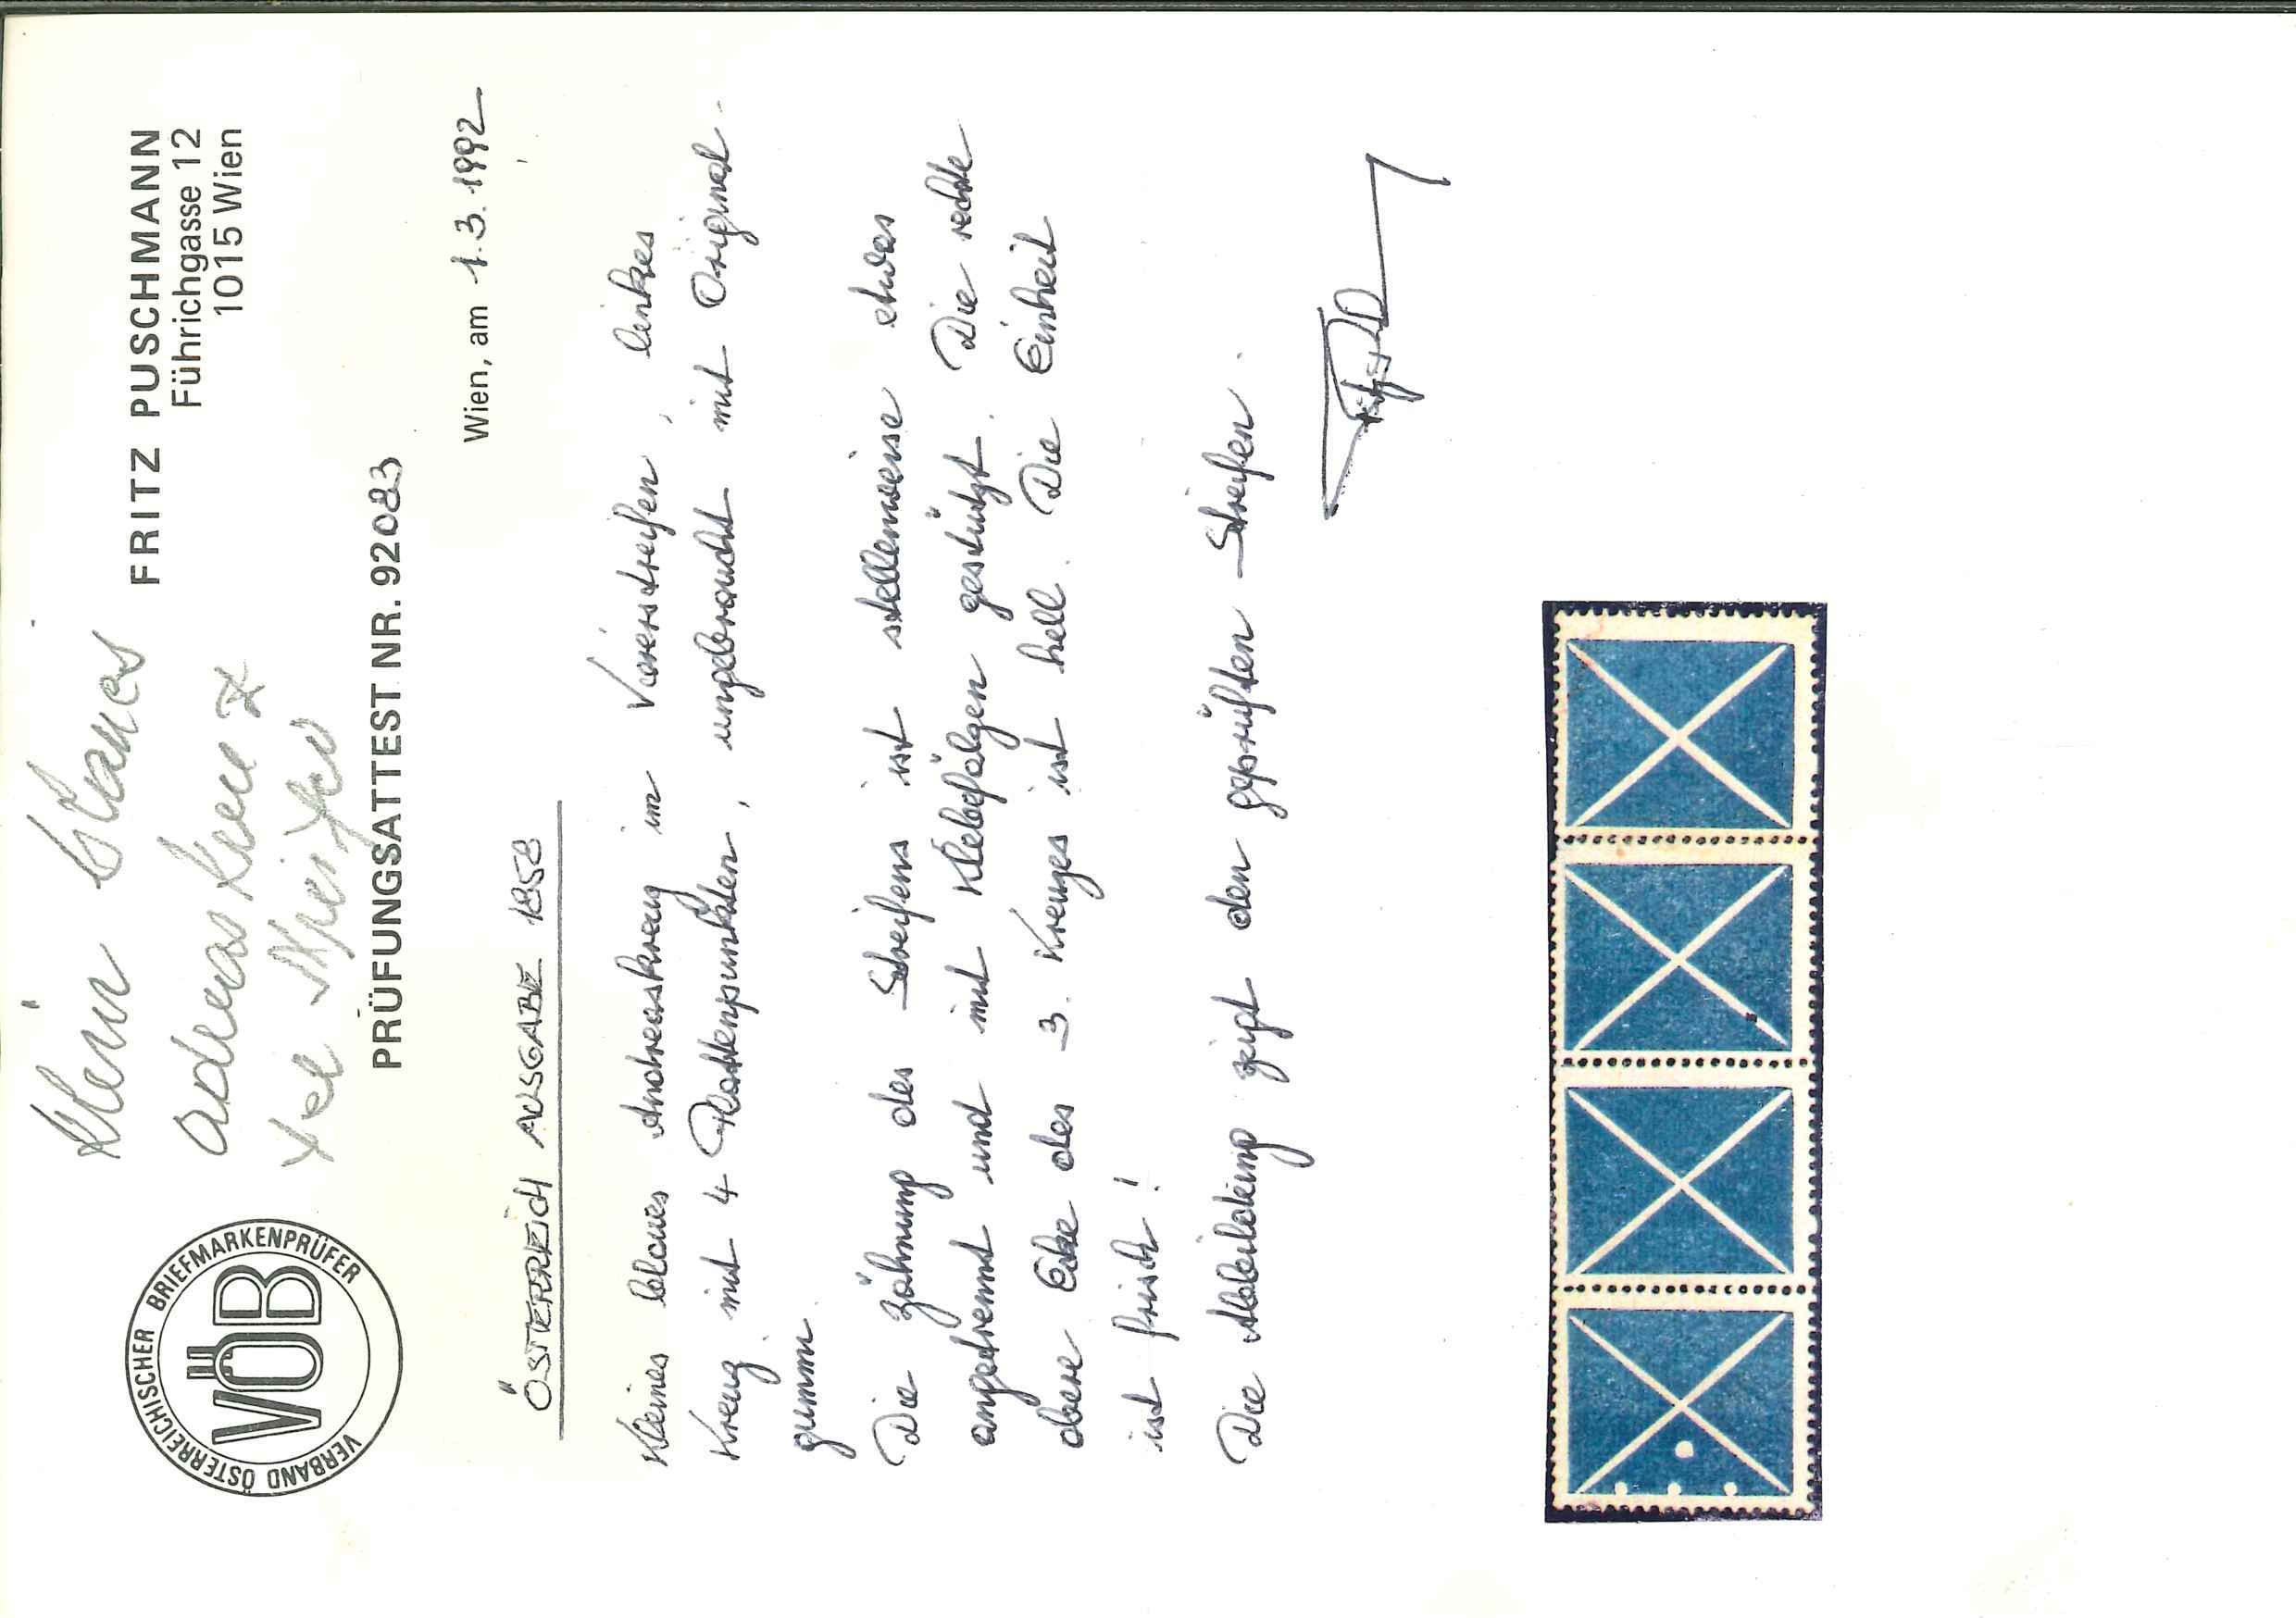 Klein blaues
Andreaskreuz
4er Streifen
VERBAND ÖSTERREICHISCHER BRIEFMARKENPRÜFER
VÖB
FRITZ PUSCHMANN
Führichgasse 12
1015 Wien
PRÜFUNGSATTEST NR. 92083
Wien, am 1.3.1992
ÖSTERREICH AUSGABE 1858
Kleines blaues Andreaskreuz im Viererstreifen, linkes
Kreuz mit 4 Plattenpunkten, ungebraucht mit Original-
gummi.
Die Zähnung des Streifens ist stellenweise etwas
angetrennt und mit Klebefälzen gestützt. Die rechte
obere Ecke des 3. Kreuzes ist hell. Die Einheit
ist frisch!
Die Abbildung zeigt den geprüften Streifen.